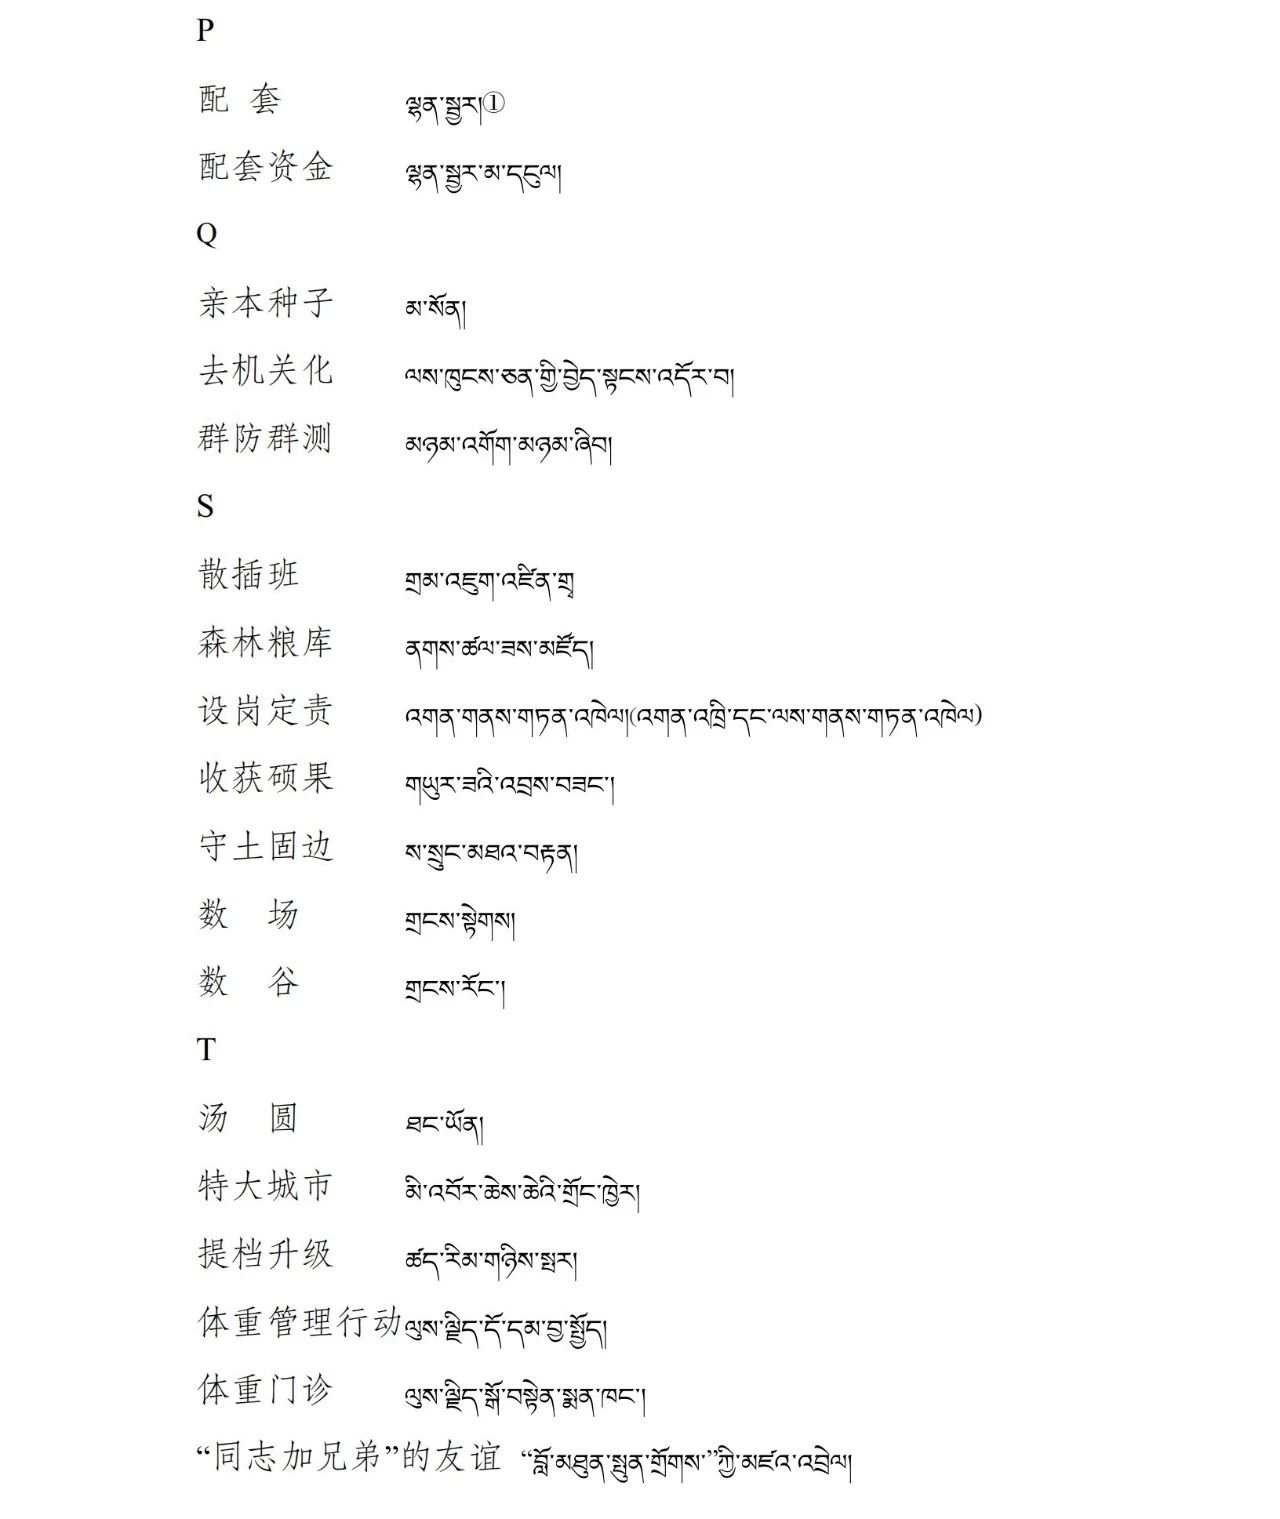 P
配 套 ལྷན་སྦྱར།①
配套资金 ལྷན་སྦྱར་མ་དངུལ།
Q
亲本种子 མ་སོན།
去机关化 ལས་ཁུངས་ཅན་གྱི་བྱེད་སྟངས་འདོར་བ།
群防群测 མཉམ་འགོག་མཉམ་ཞིབ།
S
散插班 གྲམ་འཇུག་འཛིན་གྲྭ
森林粮库 ནགས་ཚལ་ཟས་མཛོད།
设岗定责 འགན་གནས་གཏན་འཁེལ།(འགན་འཁྲི་དང་ལས་གནས་གཏན་འཁེལ)
收获硕果 གཡུར་ཟའི་འབྲས་བཟང་།
守土固边 ས་སྲུང་མཐའ་བརྟན།
数 场 གྲངས་སྟེགས།
数 谷 གྲངས་རོང་།
T
汤 圆 ཐང་ཡོན།
特大城市 མི་འབོར་ཆེས་ཆེའི་གྲོང་ཁྱེར།
提档升级 ཚད་རིམ་གཉིས་སྤར།
体重管理行动 ལུས་ལྗིད་དོ་དམ་བྱ་སྤྱོད།
体重门诊 ལུས་ལྗིད་སྒོ་བསྟེན་སྨན་ཁང་།
“同志加兄弟”的友谊 “བློ་མཐུན་སྤུན་གྲོགས་”ཀྱི་མཛའ་འབྲེལ།